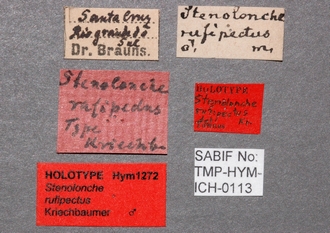 Santa Cruz
Rio grande do
Sul
Dr. Brauns.
Stenolonche
rufipectus
♂ m.
Stenolonche
rufipectus
Type
Kriechb.
HOLOTYPE
Stenolonche
HOLOTYPE Hym1272
Stenolonche
rufipectus
Kriechbaumer ♂
SABIF No:
TMP-HYM-
ICH-0113